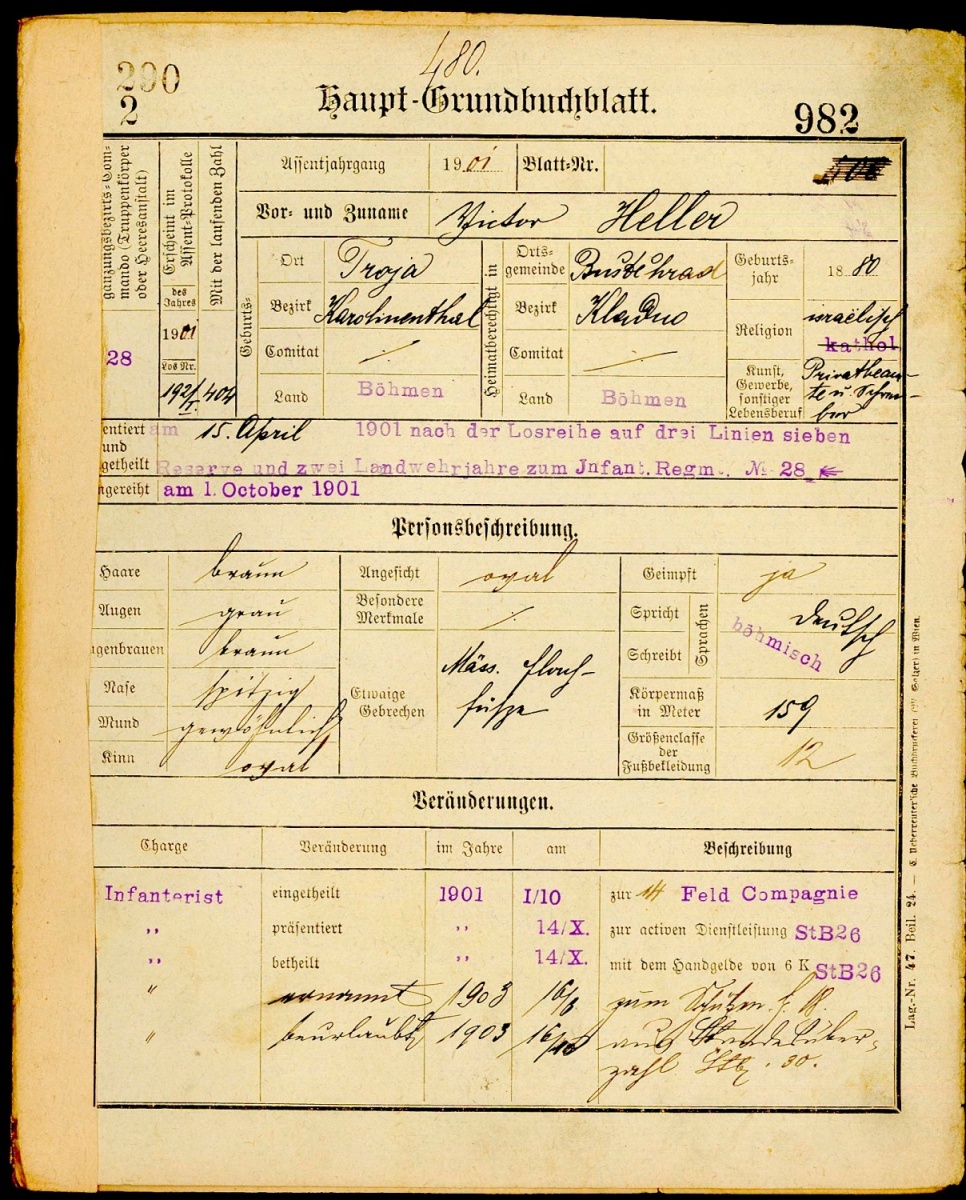 290
2
480.
Haupt-Grundbuchblatt.
982
gänzungsbezirks-Com-
mando (Truppenkörper
oder Heeresanstalt)
28
Erscheint im
Assent-Protokolle
des
Jahres
1901
Los Nr.
192/I.
Mit der laufenden Zahl
404
Assentjahrgang 1901 Blatt-Nr.
Vor- und Zuname Victor Heller
Geburts-
Ort Troja
Bezirk Karolinenthal
Comitat ./.
Land Böhmen
Heimatberechtigt in
Orts-
gemeinde Buštěhrad
Bezirk Kladno
Comitat ./.
Land Böhmen
Geburts-
jahr 1880
Religion israelisch
kathol.
Kunst,
Gewerbe,
sonstiger
Lebensberuf
Privatbeam-
te u. Schrei-
ber
sentiert am 15. April 1901 nach der Losreihe auf drei Linien sieben
und
getheilt Reserve und zwei Landwehrjahre zum Jnfant. Regm. № 28
ngereiht am 1. October 1901
Personsbeschreibung.
Haare braun
Augen grau
genbrauen braun
Nase spitzig
Mund gewöhnlich
Kinn oval
Angesicht oval
Besondere
Merkmale ./.
Etwaige
Gebrechen
Mäss. flach-
füsse
Geimpft ja
Spricht
Schreibt
Sprachen
deutsch
böhmisch
Körpermaß
in Meter 159
Größenclasse
der
Fußbekleidung 12
Veränderungen.
Charge Veränderung im Jahre am Beschreibung
Infanterist eingetheilt 1901 I/10 zur 14 Feld Compagnie
,, präsentiert ,, 14/X. zur activen Dienstleistung StB26
,, betheilt ,, 14/X. mit dem Handgelde von 6 K StB26
" ernannt 1903 zum
" beurlaubt 1903 aus Standesüber-
zahl . 30.
Lag.-Nr. 47. Beil. 24. — C. Ueberreuter'sche Buchdruckerei (M. Salzer) in Wien.